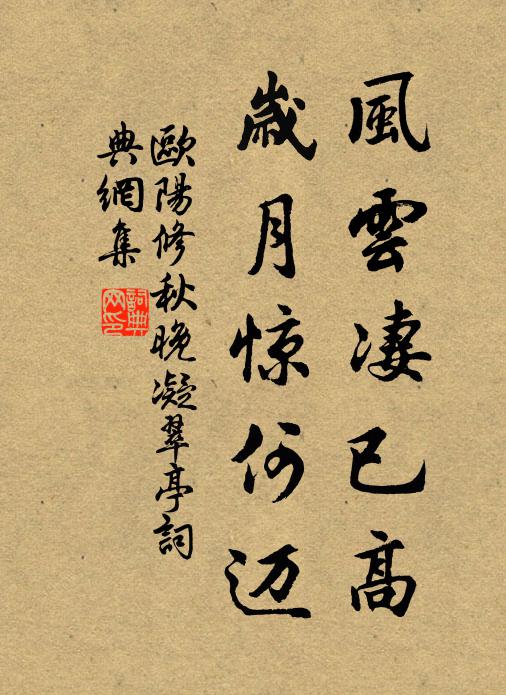 風雲凄已高
歲月惊何迈
歐陽修秋晚凝翠亭詞
典網集
詞典
网印